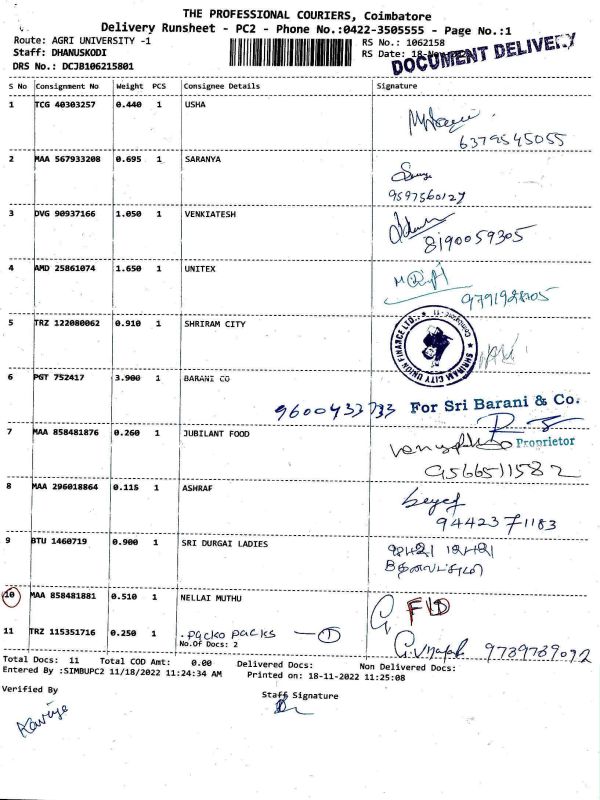 THE PROFESSIONAL COURIERS, Coimbatore
Delivery Runsheet - PC2 - Phone No.:0422-3505555 - Page No.:1
Route: AGRI UNIVERSITY -1 RS No.: 1062158
Staff: DHANUSKODI RS Date: 18-Nov-
DRS No.: DCJB106215801 DOCUMENT DELIVERY
S No Consignment No Weight PCS Consignee Details Signature
1 TCG 40303257 0.440 1 USHA
6379545055
2 MAA 567933208 0.695 1 SARANYA
9597560127
3 DVG 90937166 1.050 1 VENKIATESH
8190059305
4 AMD 25861074 1.650 1 UNITEX
5 TRZ 122080062 0.910 1 SHRIRAM CITY
SHRIRAM CITY UNION FINANCE LTD. Coimbatore
6 PGT 752417 3.900 1 BARANI CO
9600433733 For Sri Barani & Co.
Proprietor
7 MAA 858481876 0.260 1 JUBILANT FOOD
9566511582
8 MAA 296018864 0.115 1 ASHRAF
9442371183
9 BTU 1460719 0.900 1 SRI DURGAI LADIES
10 MAA 858481881 0.510 1 NELLAI MUTHU
11 TRZ 115351716 0.250 1 .packo packs — 1
No.Of Docs: 2
9789789092
Total Docs: 11 Total COD Amt: 0.00 Delivered Docs: Non Delivered Docs:
Entered By :SIMBUPC2 11/18/2022 11:24:34 AM Printed on: 18-11-2022 11:25:08
Verified By Staff Signature